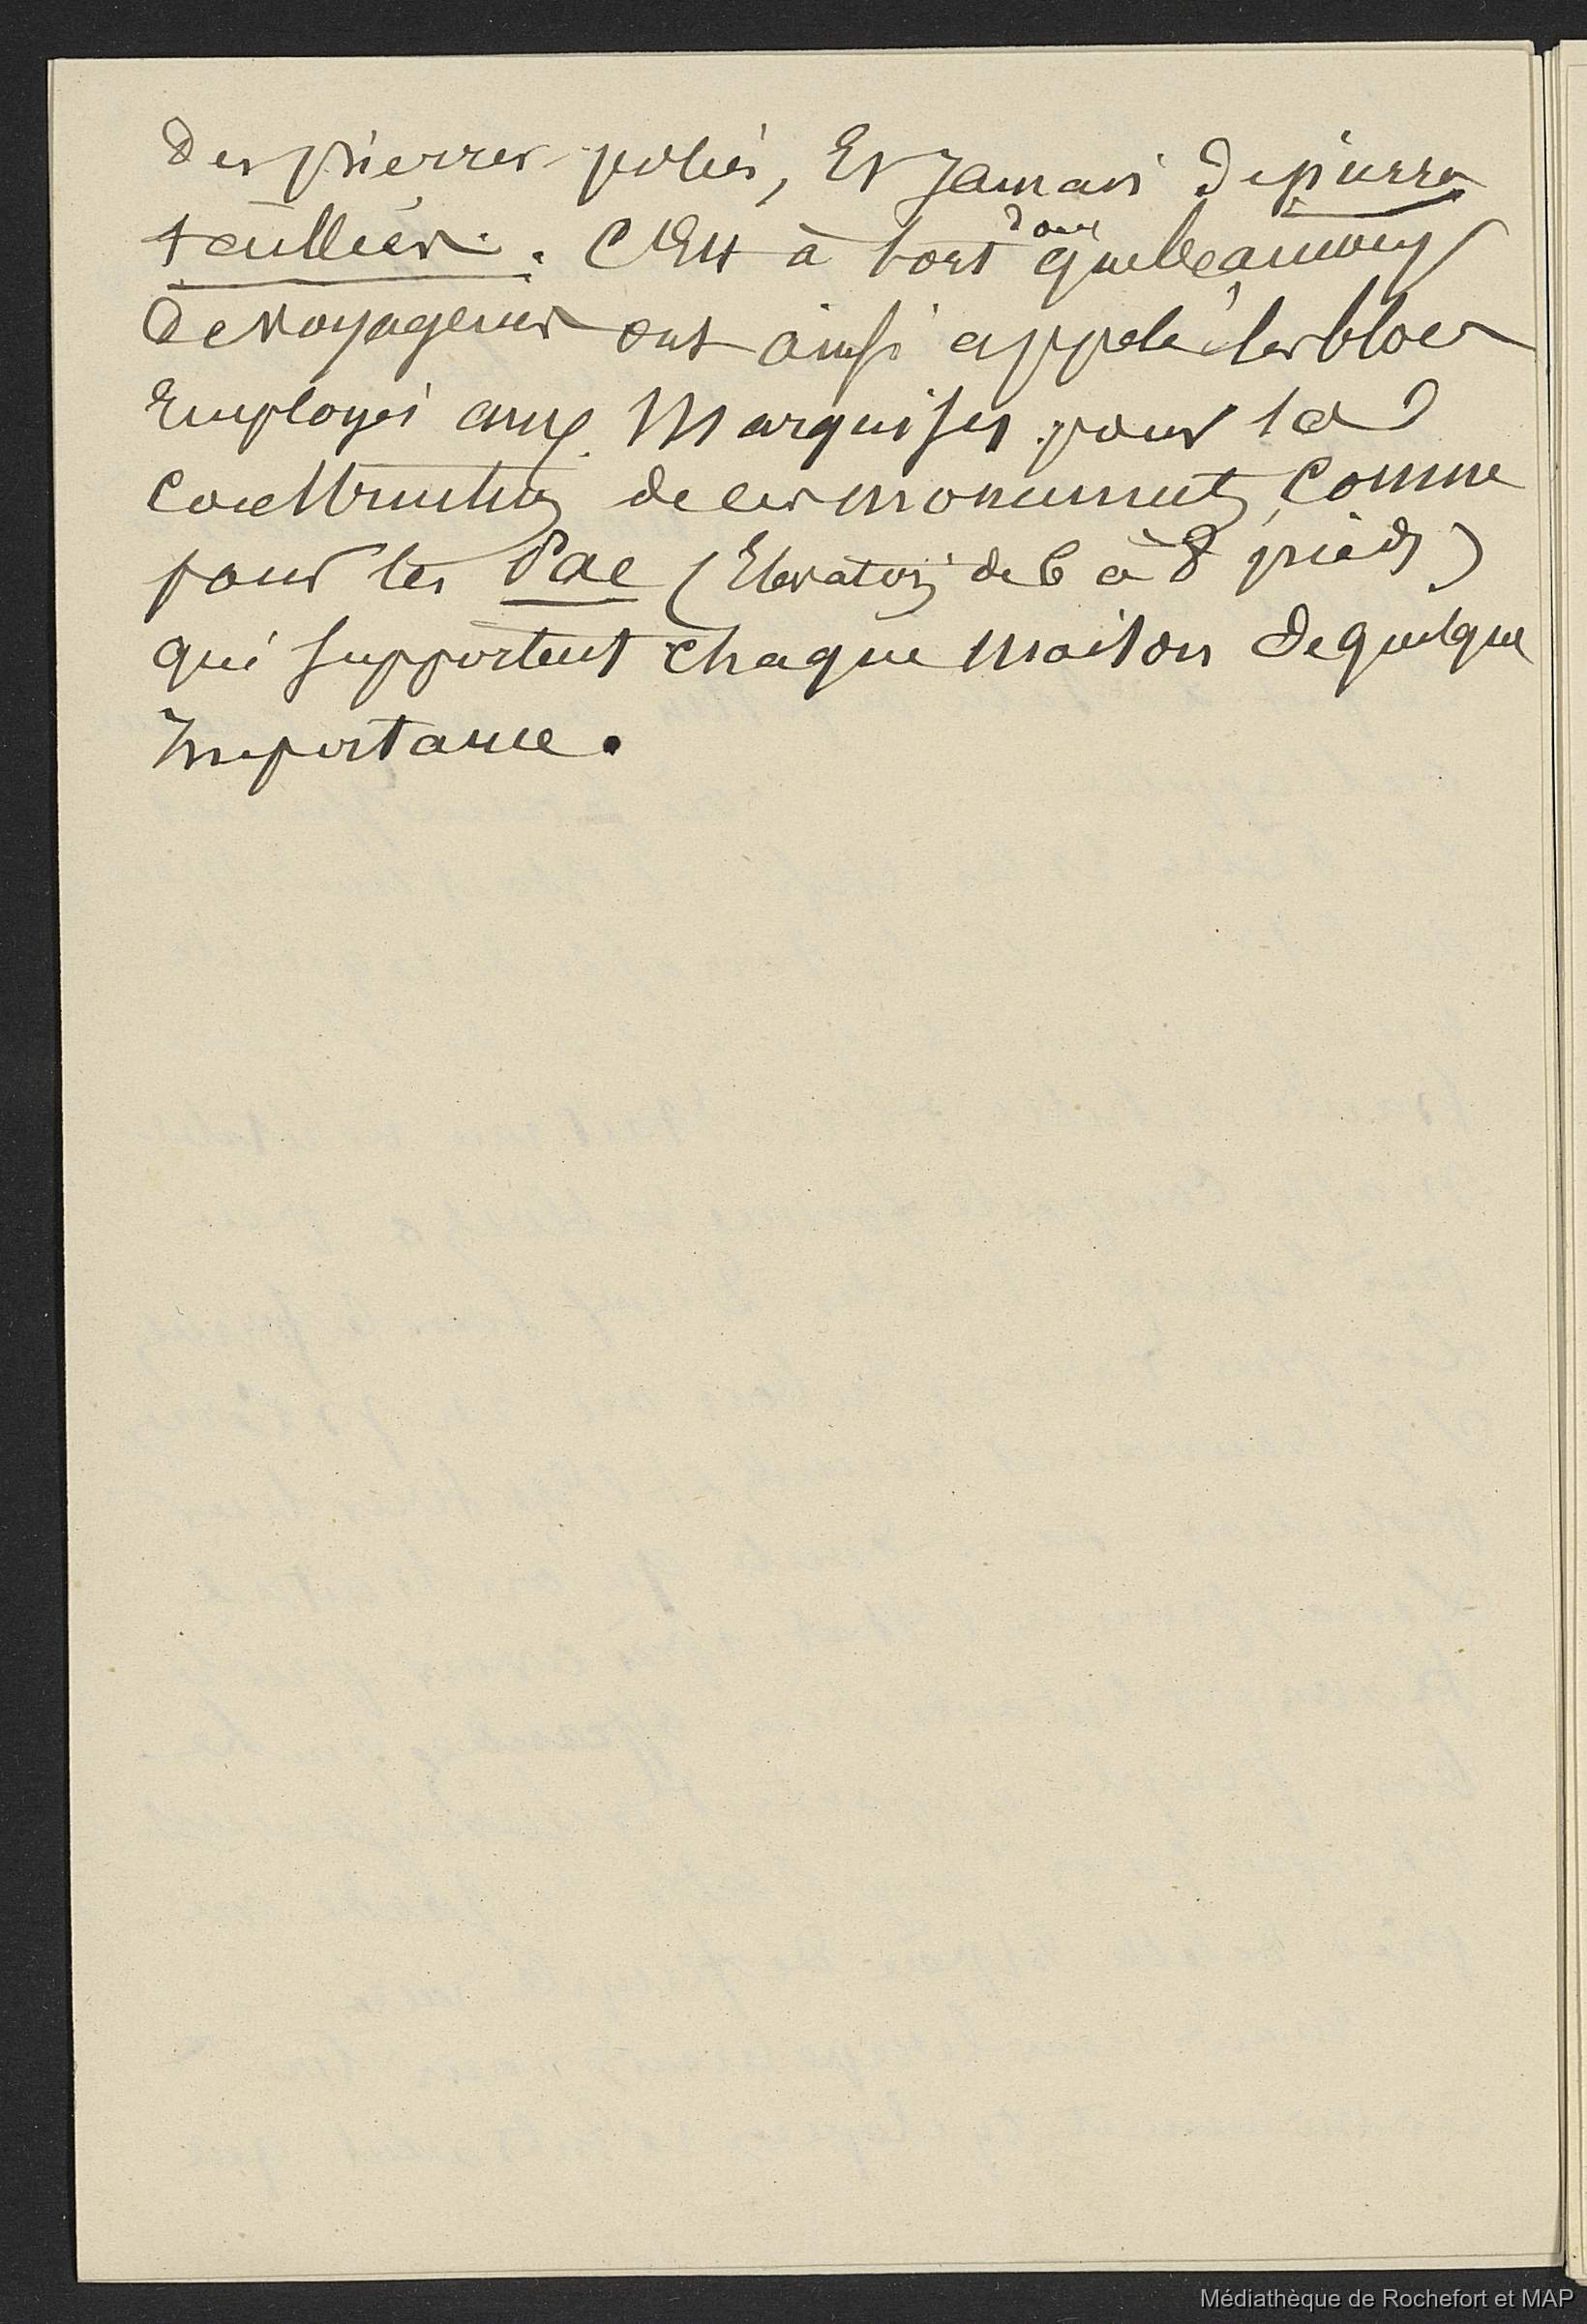 des pierres polies, Et Jamais de pierres
taillées. C'Est à tort donc que beaucoup
de voyageurs ont ainsi appelé les blocs
Employés aux Marquises pour la
construction de ces monuments, Comme
pour les Pae (Elevation de 6 à 8 pieds)
qui supportent chaque maison de quelque
Importance.
Médiathèque de Rochefort et MAP